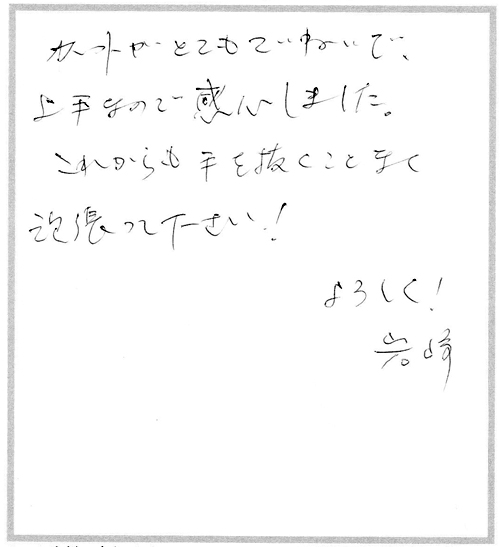 カットがとてもていねいで、
上手なので感心しました。
これからも手を抜くことなく
頑張って下さい!
よろしく!
岩崎